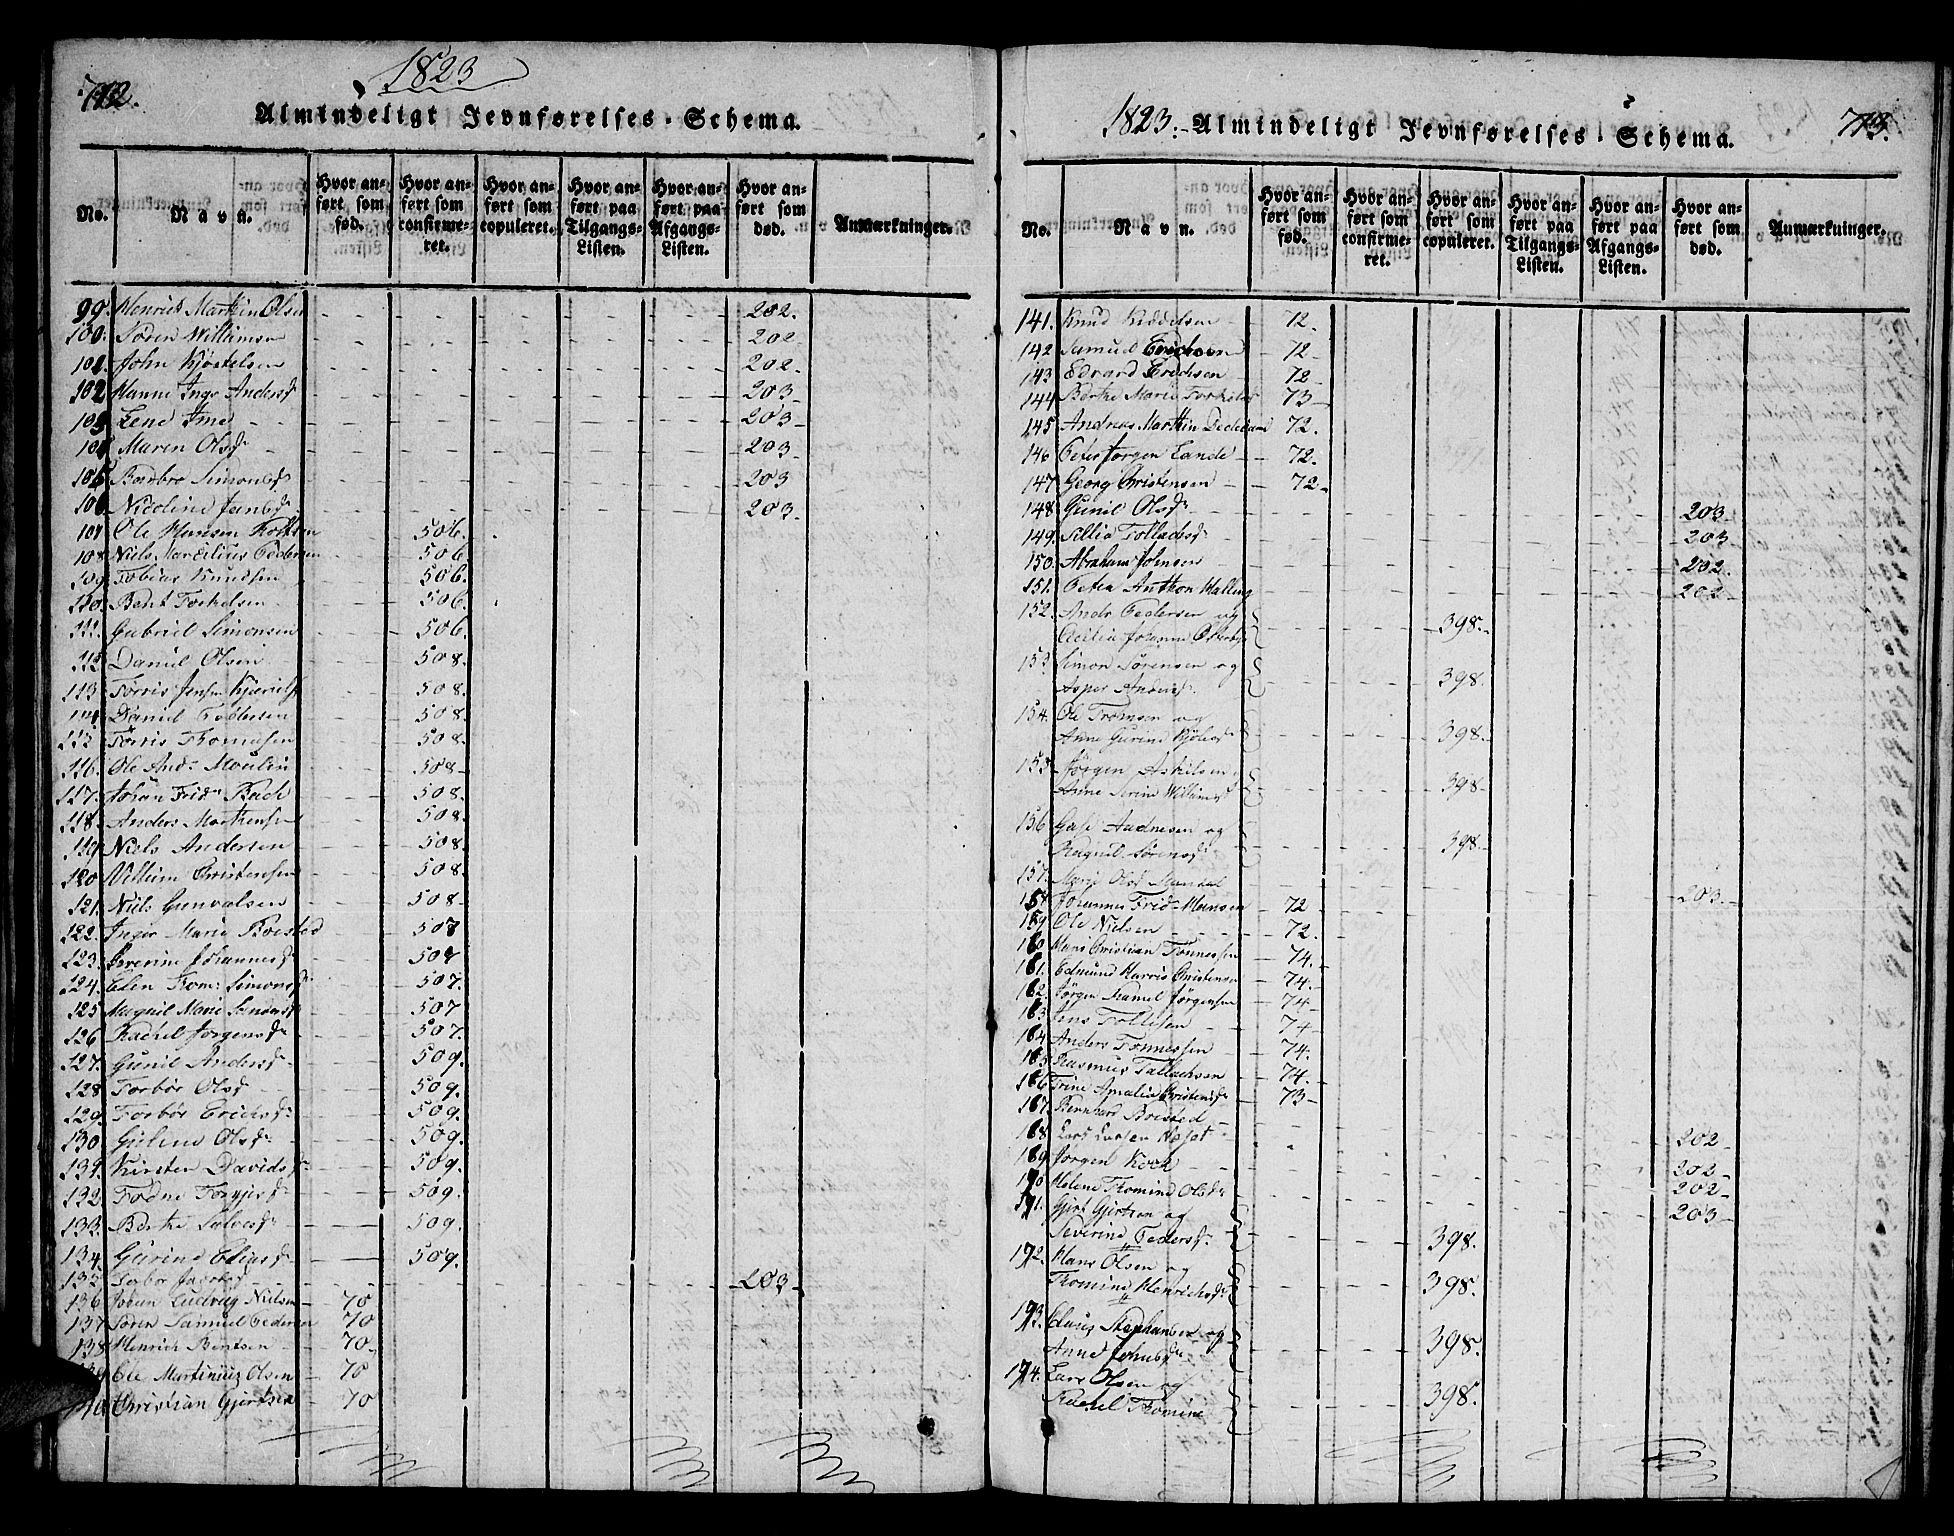 712.
1823
Almindeligt Jevnførelses-Schema.
No. Navn. Hvor anført som fød. Hvor anført som confirmeret. Hvor anført som copuleret. Hvor anført paa Tilgangs-Listen. Hvor anført paa Afgangs-Listen. Hvor anført som død. Anmærkninger.
99. Henrich Marthin Olsen 202.
100. Sören Willumsen 202
101. John Kjöstelsen 202.
102 Hanne Inge Andersd 203
103 Lene 203
104 Maren Olsd 203
105 Barbro Simonsd 203
106 Nicoline Jensd 203.
107 Ole Hansen 506.
108. Niels Marcelius Pedersen 506.
109 Tobias Knudsen 506.
110. Bent Torkelsen 506.
111. Gabriel Simonsen 506.
112 Daniel Olsen 508.
113. Torris Jensen 508.
114 Daniel Tollefsen 508.
115 Torris Thomesen 508.
116. Ole And. 508.
117. Johan Frid. Bach 508.
118. Anders Morthensen 508.
119 Niels Andersen 508.
120 Villum Christensen 508.
121. Niels Gunvalsen 508.
122. Inger Marie Boested 507
123. Severine Johannesd 507
124. Elen Trom: Simonsd 507.
125 Magnil Marie Simonsd 507
126 Rachel Jörgensd 507.
127. Gunil Andersd 509.
128 Torbör Olsd 509.
129 Torbör Erichsd 509.
130 Guline Olsd 509.
131. Kirsten Davidsd 509.
132 Todne Torgjersd 509.
133. Berthe Salvesd 509.
134. Gurine Eliasd 509.
135 Torbor Jacobsd 203.
136 Johan Ludvig Nielsen 70
137 Sören Samuel Pedersen 70
138 Henrich Bentsen 70.
139 Ole Martinius Olsen 70
140 Christian Gjertsen 70
1823. Almindeligt Jevnførelses-Schema.
713.
No. Navn. Hvor anført som fød. Hvor anført som confirmeret. Hvor anført som copuleret. Hvor anført paa Tilgangs-Listen. Hvor anført paa Afgangs-Listen. Hvor anført som død. Anmærkninger.
141. Knud Kiddelsen 72.
142 Samuel Erichsen 72
143 Edvard Erichsen 72
144 Berthe Marie Torkelsd 73
145 Andreas Marthin 72.
146 Peter Jörgen Lande 72.
147 Georg Christensen 72.
148 Gunil Olsd 203
149. Sillia Tollachsd 203
150. Abraham Johnsen 202.
151. Peter Anthon Walling 202
152. Andr Pedersen og
Cecilia Johanne 398.
153 Simon Sörensen og
Asper Andersd. 398.
154. Ole Tromsen og
Anne Gurine 398.
155 Jörgen Askelsen
Anne Serine Willumsd 398.
156 Aadnesen og
Ragnil Sörensd 398.
157. Marie Olsd Mandal 203.
158 Johannes Frid. Hansen 72
159 Ole Nielsen 72.
160 Hans Christian Tönnessen 74.
161. Edmund Harris Christensen 74.
162. Jörgen Jörgensen 74
163 Jens Tollefsen 74
164 Anders Tönnessen 74.
165 Rasmus Tallachsen 74.
166 Trine Amalia Christensd 73
167. Bernhard Boested
168 Lars Larsen 202
169 Jörgen Koch 202
170 Helene Thomine Olsd 202
171. Gjert Gjertsen og 203
Severine Pedersd. 398.
172. Hans Olsen og
Thomine Henrichsd. 398.
173. Claus Stephansen og
Anne Johnsd 398.
174. Lars Olsen og
Rachel Thomine 398.